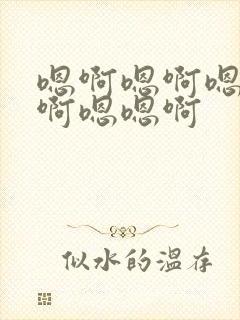 嗯啊嗯啊嗯
啊嗯嗯啊
似水的温存